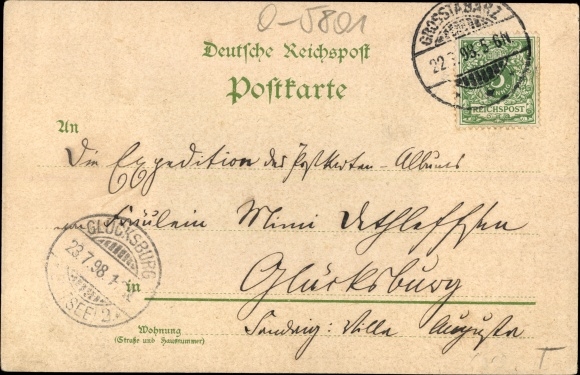 0-5801
GROSSTABARZ
22.7.98.5-6N
REICHSPOST
Deutsche Reichspost
Postkarte
An
Die Expedition des Postkarten-Albums
Fräulein Mimi Dethleffsen
GLÜCKSBURG
23.7.98.
(SEE) 2
in Glücksburg
Villa Augusta
Wohnung
(Straße und Hausnummer)